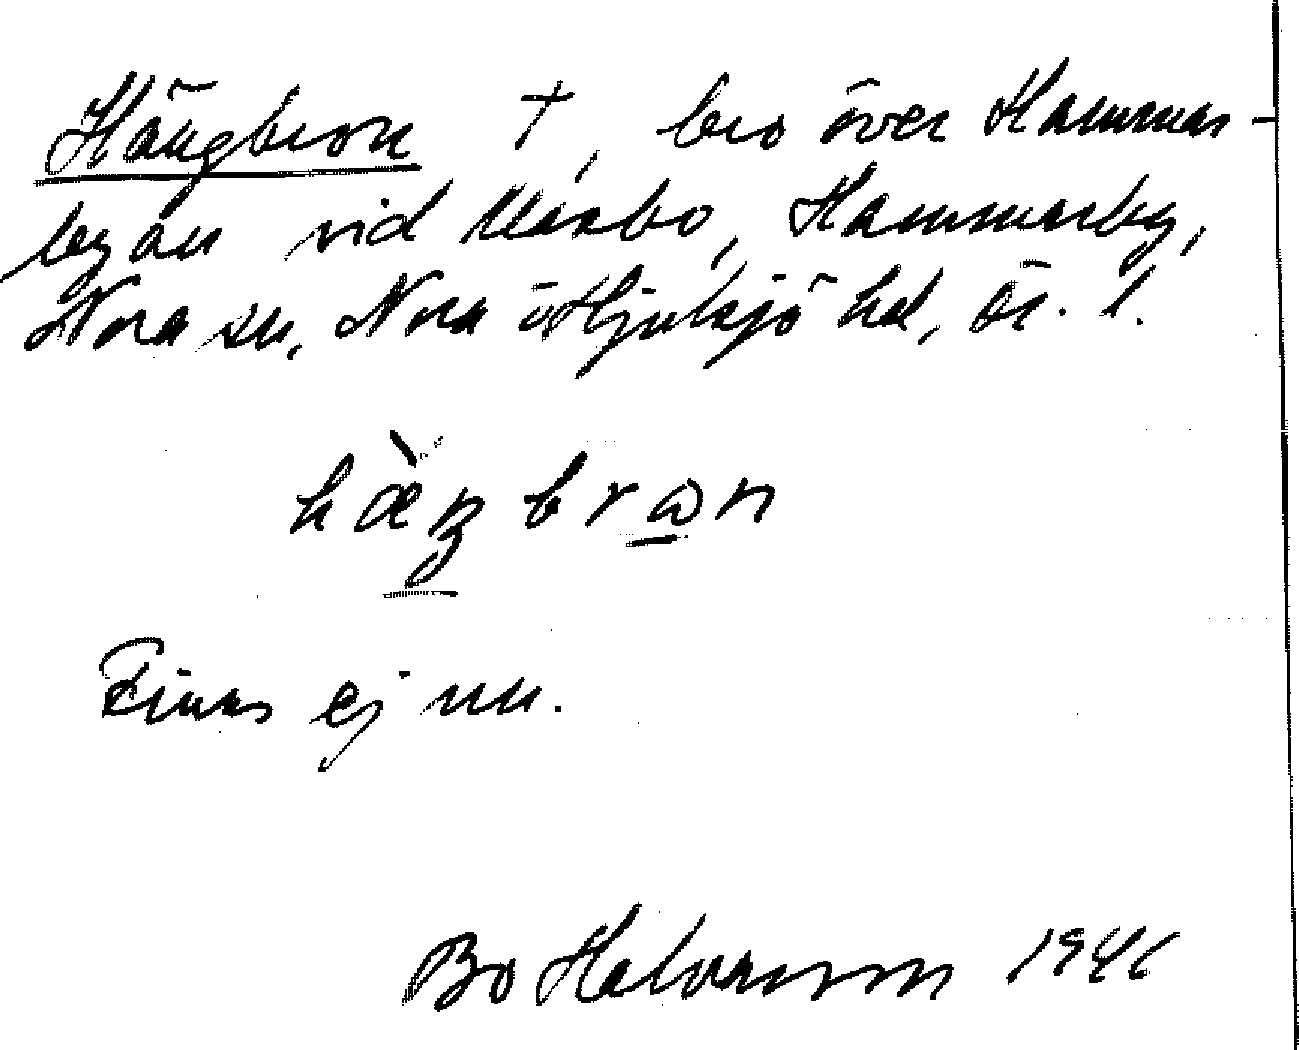 Hängbron †, bro över Hammar-
byån vid Märbo, Hammarby,
Nora sn, Nora o Hjulsjö hd, Ör. l.
hæŋbron
Finns ej nu.
Bo Halvarsson 1946